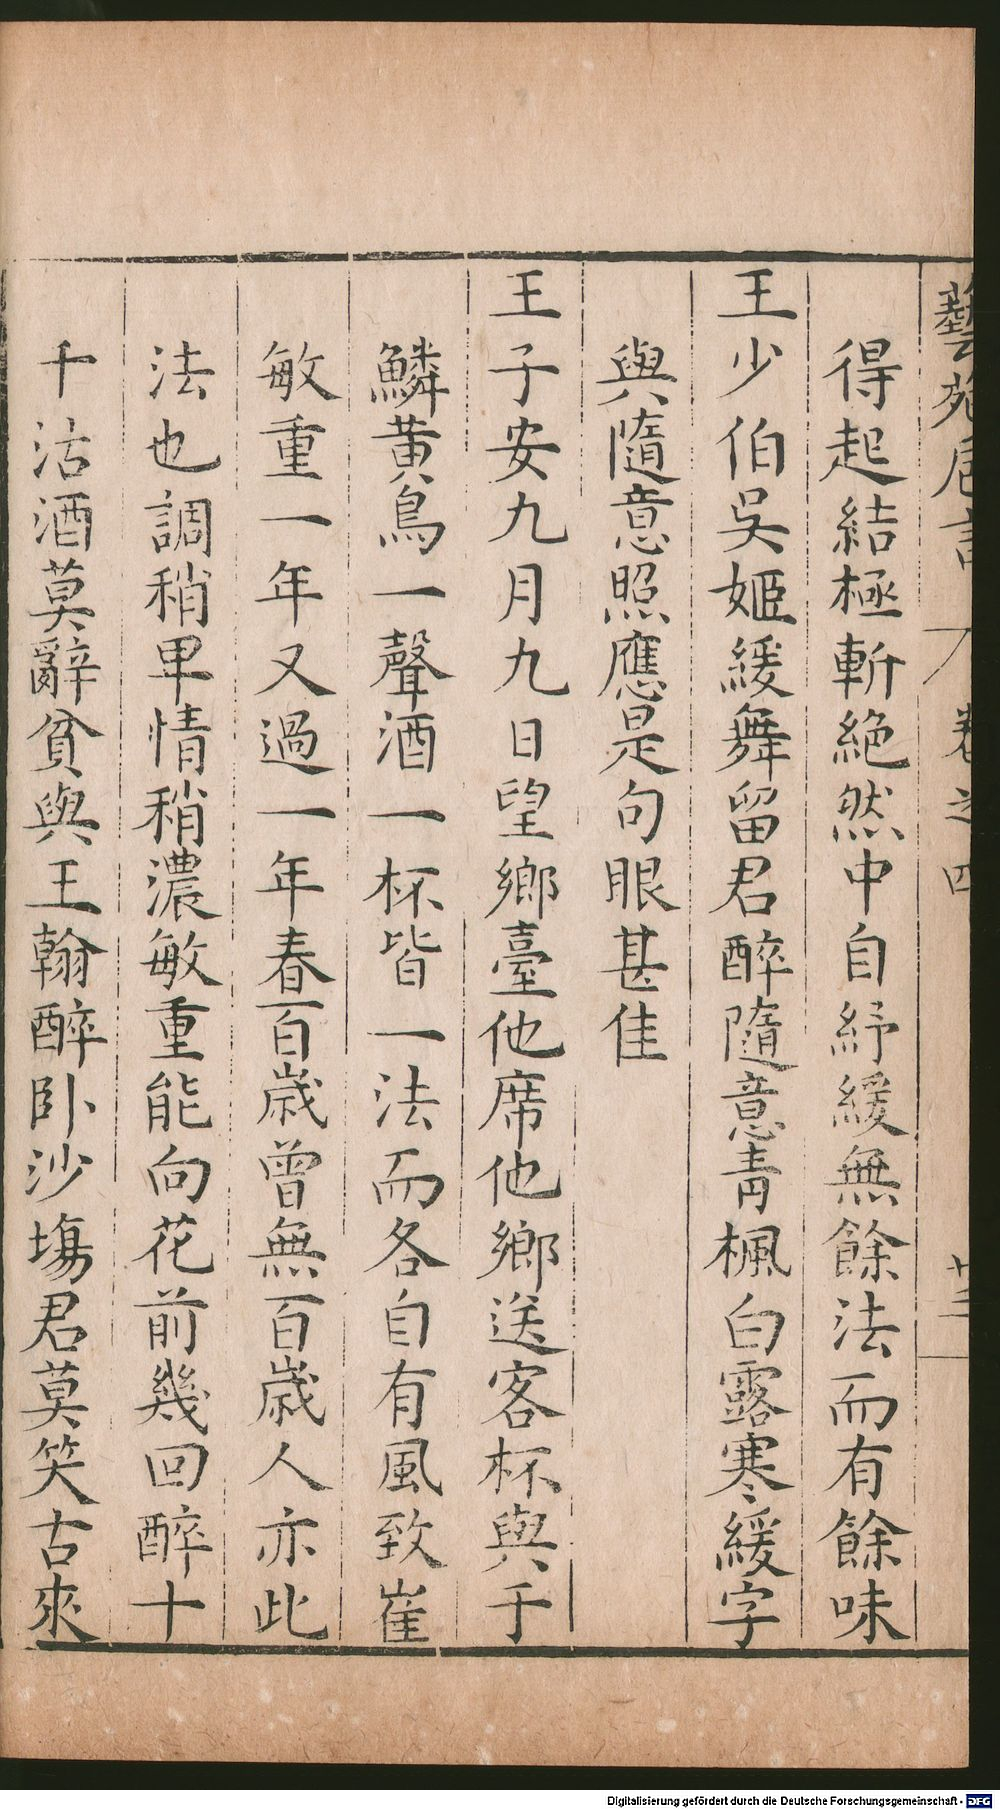 藝苑卮言 卷之四 廿三
得起結極斬絕然中自紓緩無餘法而有餘味
王少伯吳姬緩舞留君醉隨意青楓白露寒緩字
與隨意照應是句眼甚佳
王子安九月九日望鄉臺他席他鄉送客杯與于
鱗黄鳥一聲酒一杯皆一法而各自有風致崔
敏重一年又過一年春百歲曾無百歲人亦此
法也調稍卑情稍濃敏重能向花前幾回醉十
千沽酒莫辭貧與王翰醉卧沙塲君莫笑古來
Digitalisierung gefördert durch die Deutsche Forschungsgemeinschaft - DFG